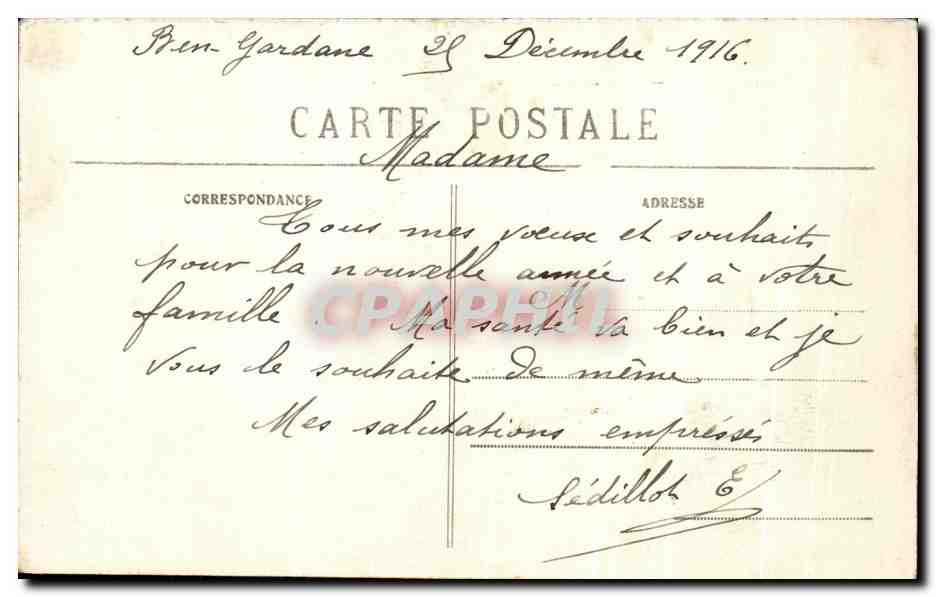 Ben-Gardane 25 Décembre 1916.
CARTE POSTALE
Madame
CORRESPONDANCE
ADRESSE
Tous mes vœux et souhaits
pour la nouvelle année et à votre
famille. Ma santé va bien et je
vous le souhaite de même
Mes salutations empressés
Sédillot E
CPAPHIL
M